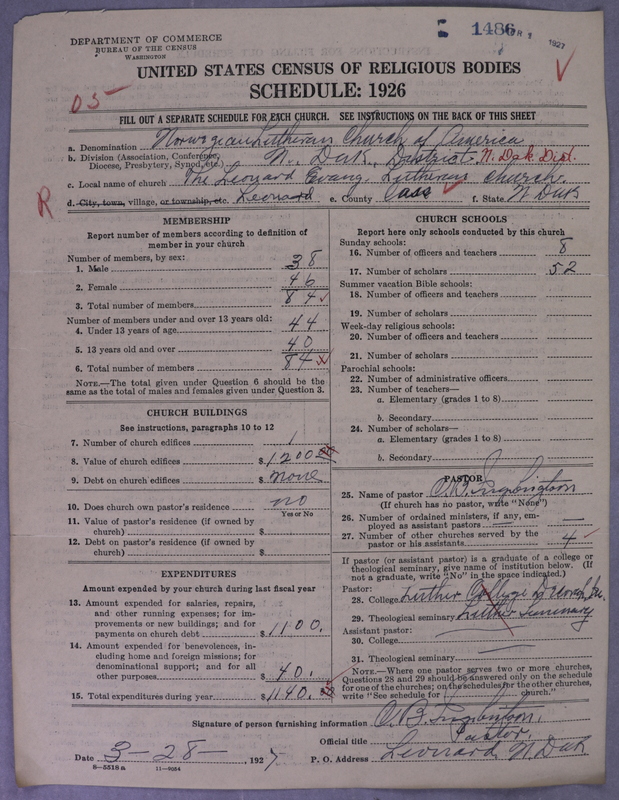 DEPARTMENT OF COMMERCE
BUREAU OF THE CENSUS
WASHINGTON
1486
APR 1 1927
UNITED STATES CENSUS OF RELIGIOUS BODIES
SCHEDULE: 1926
FILL OUT A SEPARATE SCHEDULE FOR EACH CHURCH. SEE INSTRUCTIONS ON THE BACK OF THIS SHEET
a. Denomination Norwegian Lutheran Church of America
b. Division (Association, Conference, Diocese, Presbytery, Synod, etc.) N. Dak. District. N. Dak Dist.
c. Local name of church The Leonard Evang. Lutheran Church.
R
d. City, town, village, or township, etc. Leonard e. County Cass f. State N Dak
MEMBERSHIP
Report number of members according to definition of
member in your church
Number of members, by sex:
1. Male 38
2. Female 46
3. Total number of members 84
Number of members under and over 13 years old:
4. Under 13 years of age 44
5. 13 years old and over 40
6. Total number of members 84
NOTE.—The total given under Question 6 should be the
same as the total of males and females given under Question 3.
CHURCH BUILDINGS
See instructions, paragraphs 10 to 12
7. Number of church edifices 1
8. Value of church edifices $1200
9. Debt on church edifices $none
10. Does church own pastor's residence no
Yes or No
11. Value of pastor's residence (if owned by
church) $
12. Debt on pastor's residence (if owned by
church) $
EXPENDITURES
Amount expended by your church during last fiscal year
13. Amount expended for salaries, repairs,
and other running expenses; for im-
provements or new buildings; and for
payments on church debt $1100.
14. Amount expended for benevolences, in-
cluding home and foreign missions; for
denominational support; and for all
other purposes $40.
15. Total expenditures during year $1140.
CHURCH SCHOOLS
Report here only schools conducted by this church
Sunday schools:
16. Number of officers and teachers 8
17. Number of scholars 52
Summer vacation Bible schools:
18. Number of officers and teachers
19. Number of scholars
Week-day religious schools:
20. Number of officers and teachers
21. Number of scholars
Parochial schools:
22. Number of administrative officers
23. Number of teachers—
a. Elementary (grades 1 to 8)
b. Secondary
24. Number of scholars—
a. Elementary (grades 1 to 8)
b. Secondary
PASTOR
25. Name of pastor O. B.
(If church has no pastor, write "None")
26. Number of ordained ministers, if any, em-
ployed as assistant pastors —
27. Number of other churches served by the
pastor or his assistants 4
If pastor (or assistant pastor) is a graduate of a college or
theological seminary, give name of institution below. (If
not a graduate, write "No" in the space indicated.)
Pastor:
28. College Luther College Decorah, Ia.
29. Theological seminary Luther Seminary
Assistant pastor:
30. College
31. Theological seminary
NOTE.—Where one pastor serves two or more churches,
Questions 28 and 29 should be answered only on the schedule
for one of the churches; on the schedules for the other churches,
write "See schedule for church."
Signature of person furnishing information O. B.
Official title Pastor.
Date 3-28-, 1927 P. O. Address Leonard N. Dak
8—5518a 11—9054